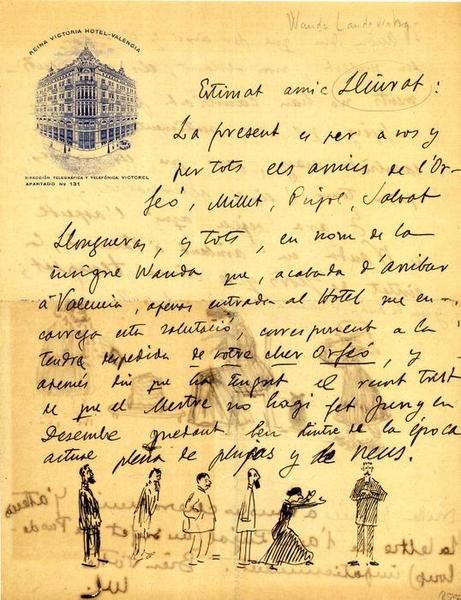 REINA VICTORIA HOTEL-VALENCIA
Wanda Landowska
DIRECCIÓN TELEGRÁFICA Y TELEFÓNICA VICTOREL
APARTADO No 131
Estimat amic Lliurat:
La present es per a vos y
per tots els amics de l'Or-
feó, Millet, Pujol, Salvat
Llongueras, y tots, en nom de la
insigne Wanda que, acabada d'arribar
a Valencia, apenas entrada al Hotel me en-
carrega esta salutació, corresponent a la
tendra despedida de votre cher Orfeó, y
apenés diu que ha tingut el
de que el Mestre no hagi fet Juny en
Desembre quedant ben dintre de la época
actual plena de plujas y de neus.